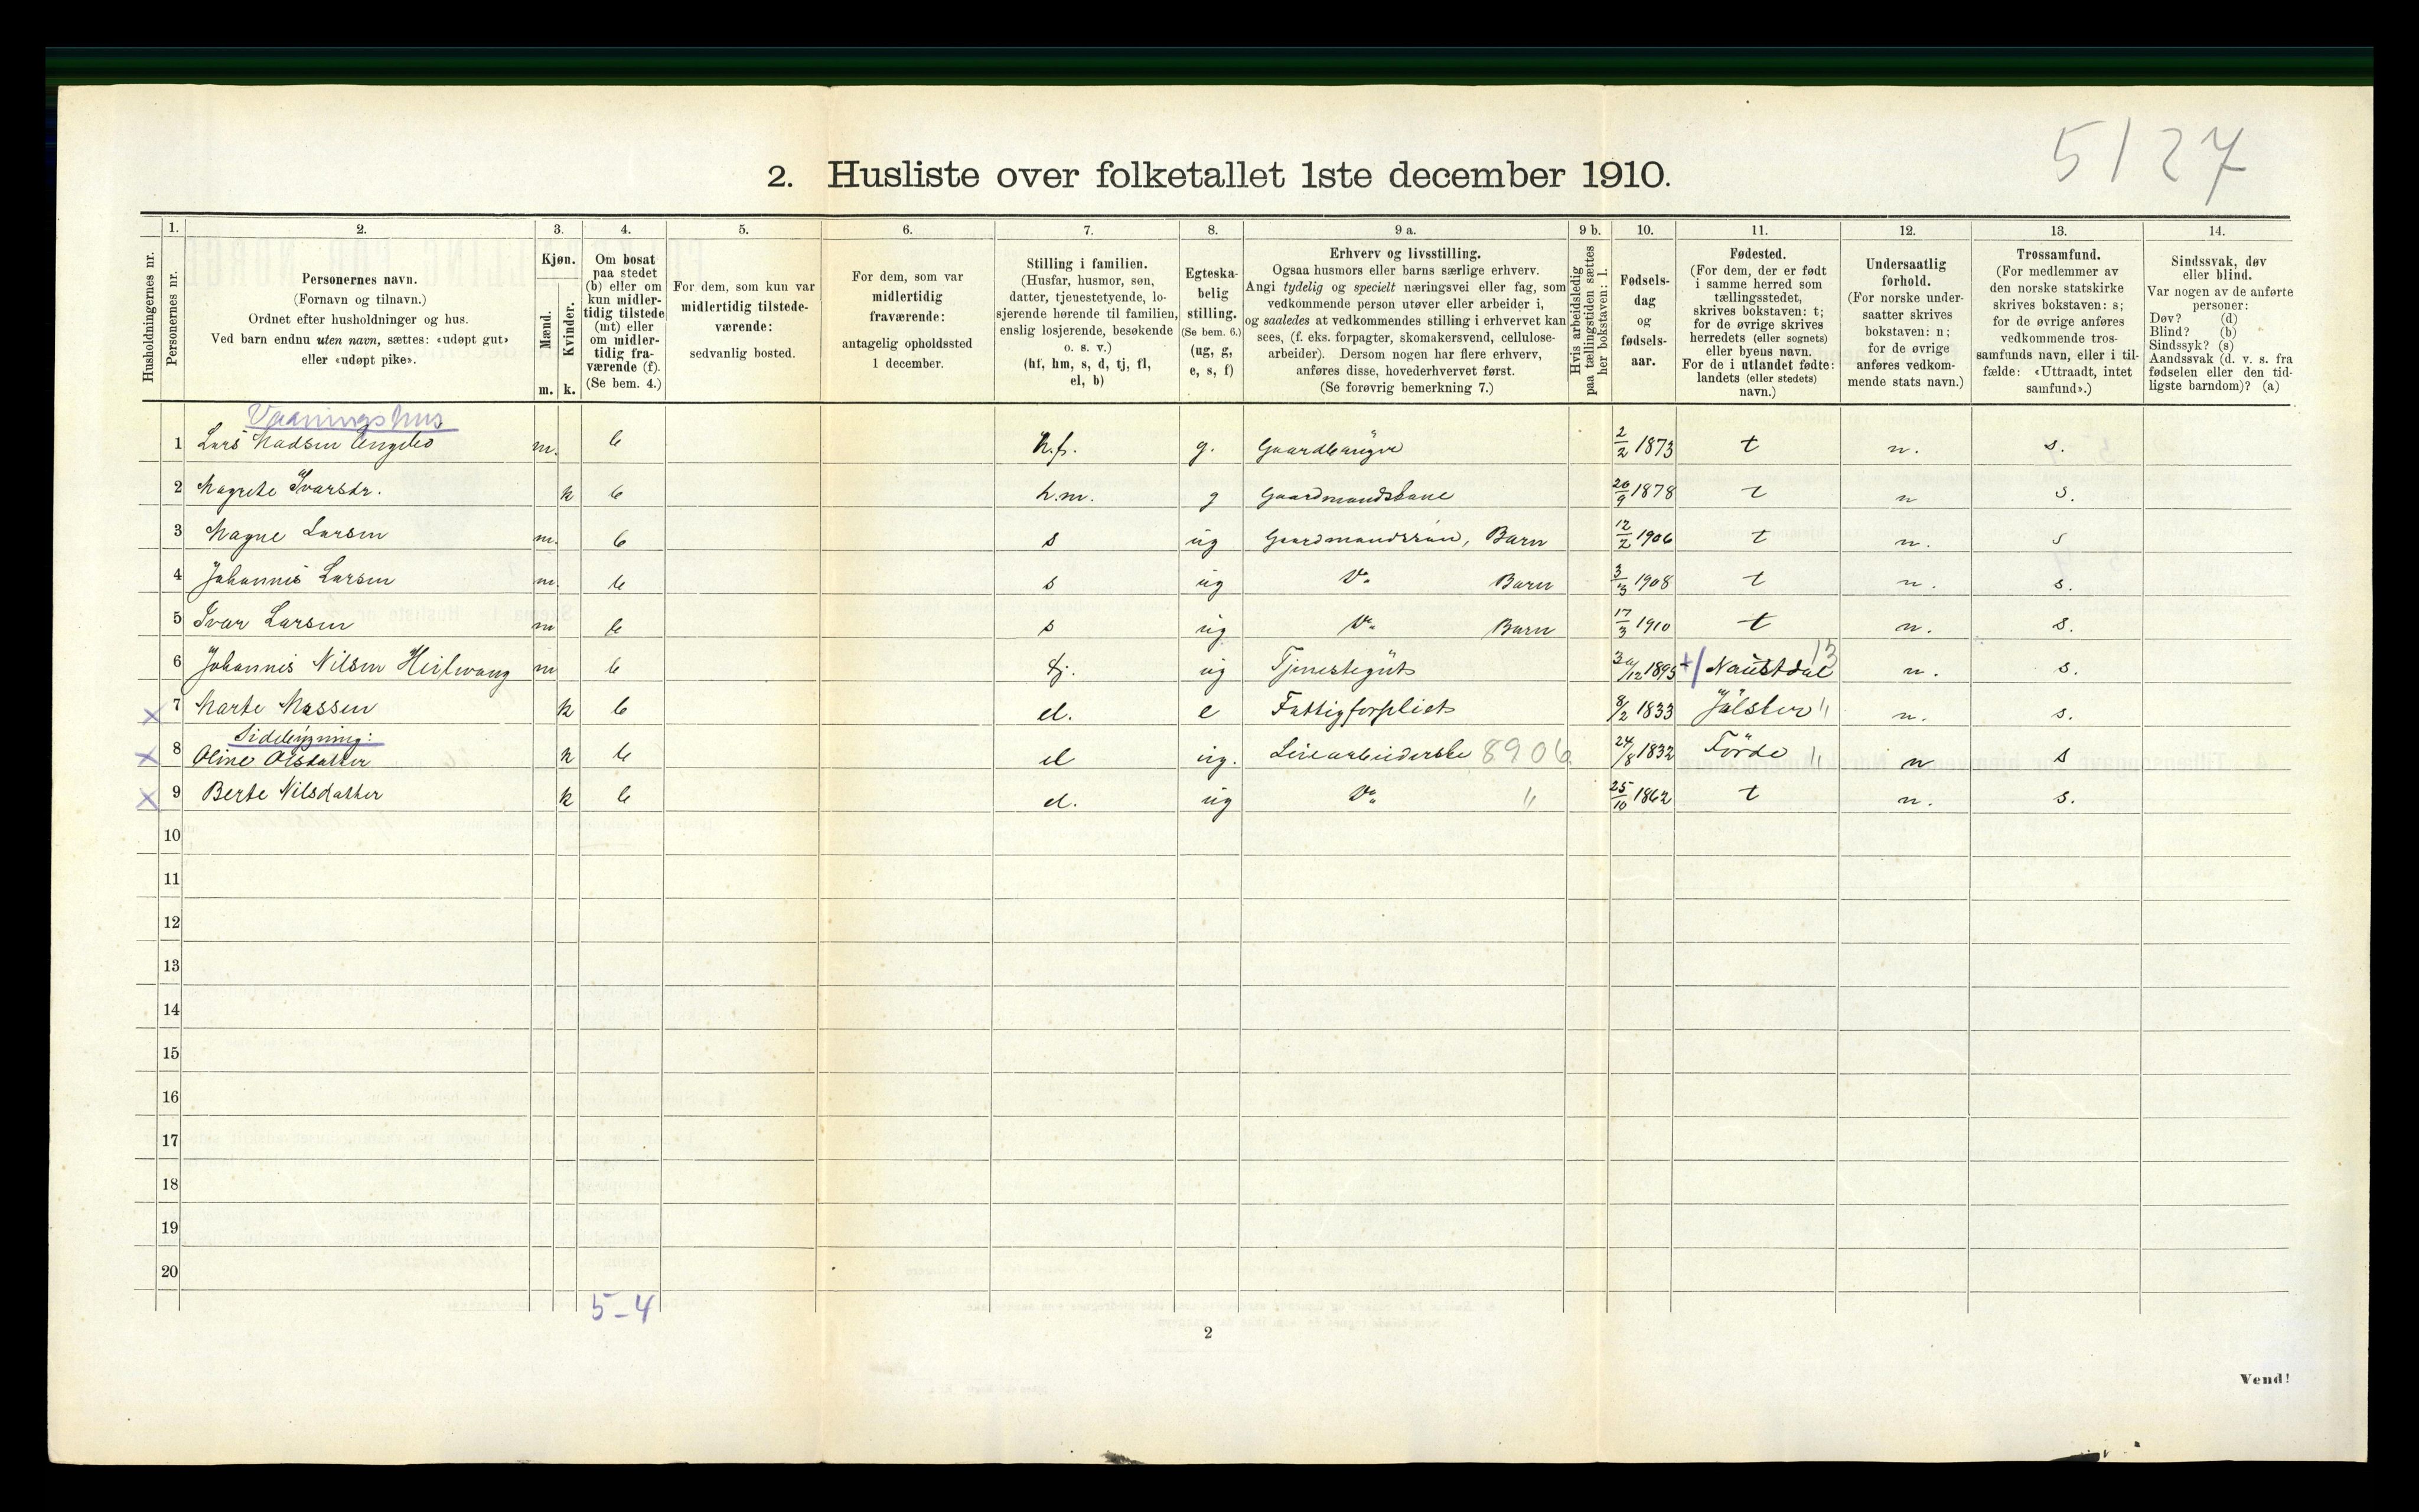 5127
2. Husliste over folketallet 1ste december 1910.
Husholdningernes nr.
1.
Personernes nr.
2.
Personernes navn.
(Fornavn og tilnavn.)
Ordnet efter husholdninger og hus.
Ved barn endnu uten navn, sættes: «udøpt gut»
eller «udøpt pike».
3.
Kjøn.
Mænd.
Kvinder.
m. k.
4.
Om bosat
paa stedet
(b) eller om
kun midler-
tidig tilstede
(mt) eller
om midler-
tidig fra-
værende (f).
(Se bem. 4.)
5.
For dem, som kun var
midlertidig tilstede-
værende:
sedvanlig bosted.
6.
For dem, som var
midlertidig
fraværende:
antagelig opholdssted
1 december.
7.
Stilling i familien.
(Husfar, husmor, søn,
datter, tjenestetyende, lo-
sjerende hørende til familien,
enslig losjerende, besøkende
o. s. v.)
(hf, hm, s, d, tj, fl,
el, b)
8.
Egteska-
belig
stilling.
(Se bem. 6.)
(ug, g,
e, s, f)
9 a.
Erhverv og livsstilling.
Ogsaa husmors eller barns særlige erhverv.
Angi tydelig og specielt næringsvei eller fag, som
vedkommende person utøver eller arbeider i,
og saaledes at vedkommendes stilling i erhvervet kan
sees, (f. eks. forpagter, skomakersvend, cellulose-
arbeider). Dersom nogen har flere erhverv,
anføres disse, hovederhvervet først.
(Se forøvrig bemerkning 7.)
9 b.
Hvis arbeidsledig
paa tællingstiden sættes
her bokstaven: l.
10.
Fødsels-
dag
og
fødsels-
aar.
11.
Fødested.
(For dem, der er født
i samme herred som
tællingsstedet,
skrives bokstaven: t;
for de øvrige skrives
herredets (eller sognets)
eller byens navn.
For de i utlandet fødte:
landets (eller stedets)
navn.)
12.
Undersaatlig
forhold.
(For norske under-
saatter skrives
bokstaven: n;
for de øvrige
anføres vedkom-
mende stats navn.)
13.
Trossamfund.
(For medlemmer av
den norske statskirke
skrives bokstaven: s;
for de øvrige anføres
vedkommende tros-
samfunds navn, eller i til-
fælde: «Uttraadt, intet
samfund».)
14.
Sindssvak, døv
eller blind.
Var nogen av de anførte
personer:
Døv? (d)
Blind? (b)
Sindssyk? (s)
Aandssvak (d. v. s. fra
fødselen eller den tid-
ligste barndom)? (a)
Vaaningshus
1 Lars Madsen Engebø m. b h.f. g. Gaardbruger 2/2 1873 t n. s.
2 Magrete Ivarsdr. k b h.m. g Gaardmandskone 20/9 1878 t n s.
3 Magne Larsen m. b s ug Gaardmandssøn, Barn 12/2 1906 t n. s
4 Johannes Larsen m. b s ug Do Barn 3/3 1908 t n. s.
5 Ivar Larsen m b s ug Do Barn 17/3 1910 t n. s.
6 Johannes Nilsen m b tj. ug Tjenestegut /12 1895 Naustdal 13 n. s.
x 7 Marte k b el. e Fattigforpleiet 8/2 1833 Jølster " n. s.
Sidebygning:
x 8 Oline Olsdatter k b el ug. Leiearbeiderske 8906 24/8 1832 Førde " n s
x 9 Berte Nilsdatter k b el. ug Do " 25/10 1862 t n. s.
10
11
12
13
14
15
16
17
18
19
20
5-4
2
Vend!